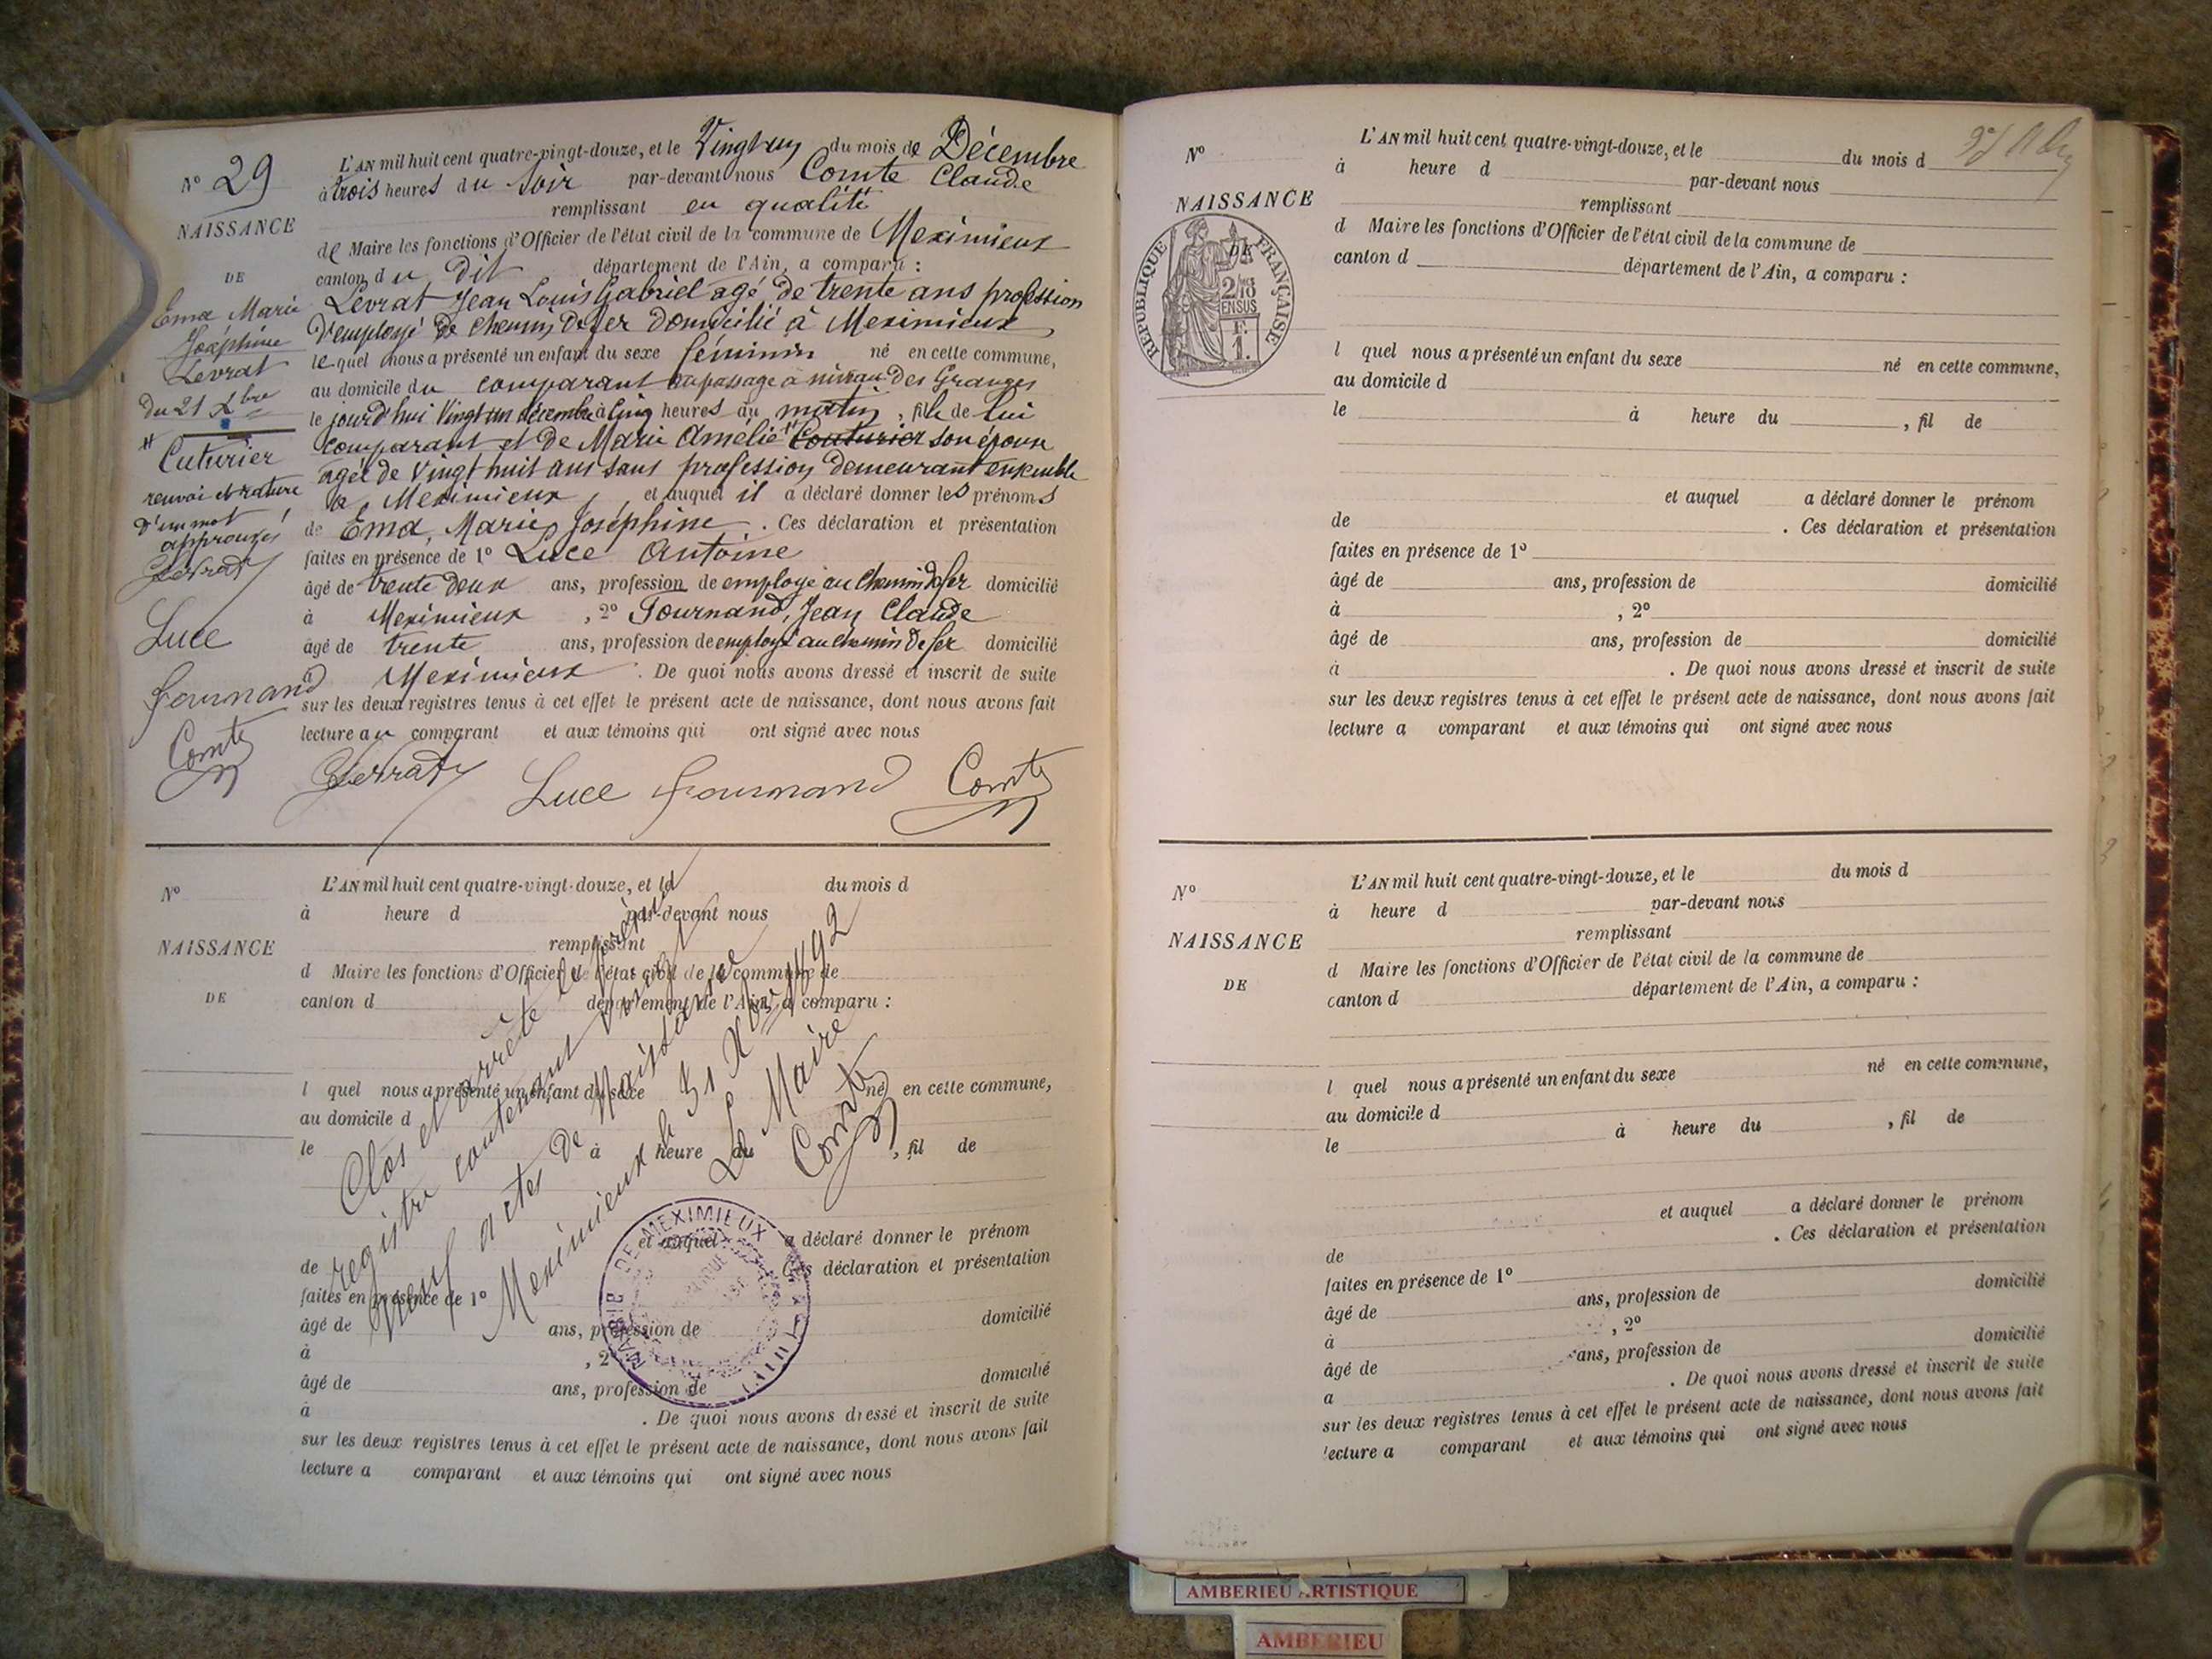 N° 29
NAISSANCE
DE
Ema Marie
Joséphine
Levrat
Du 21 Xbre
Cuturier
renvoi et rature
d'un mot
approuvés
Levrat
Luce
Fournand
Comte
L'AN mil huit cent quatre-vingt-douze, et le Vingt un du mois de Décembre
à trois heures du soir par-devant nous Comte Claude
remplissant en qualité
de Maire les fonctions d'Officier de l'état civil de la commune de Meximieux
canton du Dit département de l'Ain, a comparu :
Levrat Jean Louis Gabriel agé de trente ans profession
D'employé de chemin de fer domicilié à Meximieux
lequel nous a présenté un enfant du sexe féminin né en cette commune,
au domicile du comparant au passage à niveau des Granges
le jourd'hui Vingt un décembre à Cinq heures du matin, fille de lui
comparant et de Marie Amélie Couturier son épouse
agée de Vingt huit ans sans profession demeurant ensemble
à Meximieux, et auquel il a déclaré donner les prénoms
de Ema, Marie, Joséphine. Ces déclaration et présentation
faites en présence de 1° Luce Antoine
âgé de trente deux ans, profession de employé au chemin de fer domicilié
à Meximieux, 2° Fournand, Jean Claude
âgé de trente ans, profession de employé au chemin de fer domicilié
à Meximieux. De quoi nous avons dressé et inscrit de suite
sur les deux registres tenus à cet effet le présent acte de naissance, dont nous avons fait
lecture au comparant et aux témoins qui ont signé avec nous
Levrat Luce Fournand Comte
N°
NAISSANCE
DE
L'AN mil huit cent quatre-vingt-douze, et le du mois d
à heure d par-devant nous
remplissant
d Maire les fonctions d'Officier de l'état civil de la commune de
canton d département de l'Ain, a comparu :
l quel nous a présenté un enfant du sexe né en cette commune,
au domicile d
le à heure du , fil de
et auquel a déclaré donner le prénom
de Ces déclaration et présentation
faites en présence de 1°
âgé de ans, profession de domicilié
à , 2°
âgé de ans, profession de domicilié
à . De quoi nous avons dressé et inscrit de suite
sur les deux registres tenus à cet effet le présent acte de naissance, dont nous avons fait
lecture a comparant et aux témoins qui ont signé avec nous
Clos et arrêté le présent
registre contenant vingt
neuf actes de Naissance
Meximieux le 31 Xbre 1892
Le Maire
Comte
MAIRIE DE MEXIMIEUX
(AIN)
N°
NAISSANCE
RÉPUBLIQUE FRANÇAISE
2/10
EN SUS
F.
1.
L'AN mil huit cent quatre-vingt-douze, et le du mois d
à heure d par-devant nous
remplissant
d Maire les fonctions d'Officier de l'état civil de la commune de
canton d département de l'Ain, a comparu :
l quel nous a présenté un enfant du sexe né en cette commune,
au domicile d
le à heure du , fil de
et auquel a déclaré donner le prénom
de . Ces déclaration et présentation
faites en présence de 1°
âgé de ans, profession de domicilié
à , 2°
âgé de ans, profession de domicilié
à . De quoi nous avons dressé et inscrit de suite
sur les deux registres tenus à cet effet le présent acte de naissance, dont nous avons fait
lecture a comparant et aux témoins qui ont signé avec nous
N°
NAISSANCE
DE
L'AN mil huit cent quatre-vingt-douze, et le du mois d
à heure d par-devant nous
remplissant
d Maire les fonctions d'Officier de l'état civil de la commune de
canton d département de l'Ain, a comparu :
l quel nous a présenté un enfant du sexe né en cette commune,
au domicile d
le à heure du , fil de
et auquel a déclaré donner le prénom
de . Ces déclaration et présentation
faites en présence de 1°
âgé de ans, profession de domicilié
à , 2°
âgé de ans, profession de domicilié
a . De quoi nous avons dressé et inscrit de suite
sur les deux registres tenus à cet effet le présent acte de naissance, dont nous avons fait
lecture a comparant et aux témoins qui ont signé avec nous
AMBERIEU ARTISTIQUE
AMBERIEU